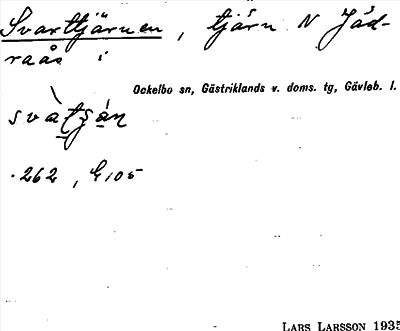 Svarttjärnen, tjärn N Jäd-
raås i
Ockelbo sn, Gästriklands v. doms. tg, Gävleb. l.
svàtʒán
262, E105
LARS LARSSON 1935